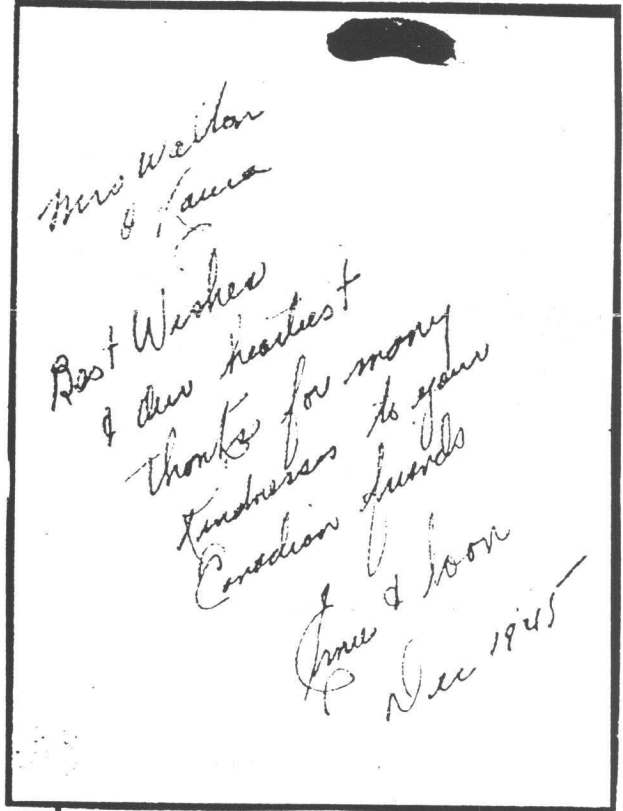 Mrs Walton
& Laura
Best Wishes
& our heartiest
thanks for many
kindnesses to your
Canadian friends
Ernie &
Dec 1945